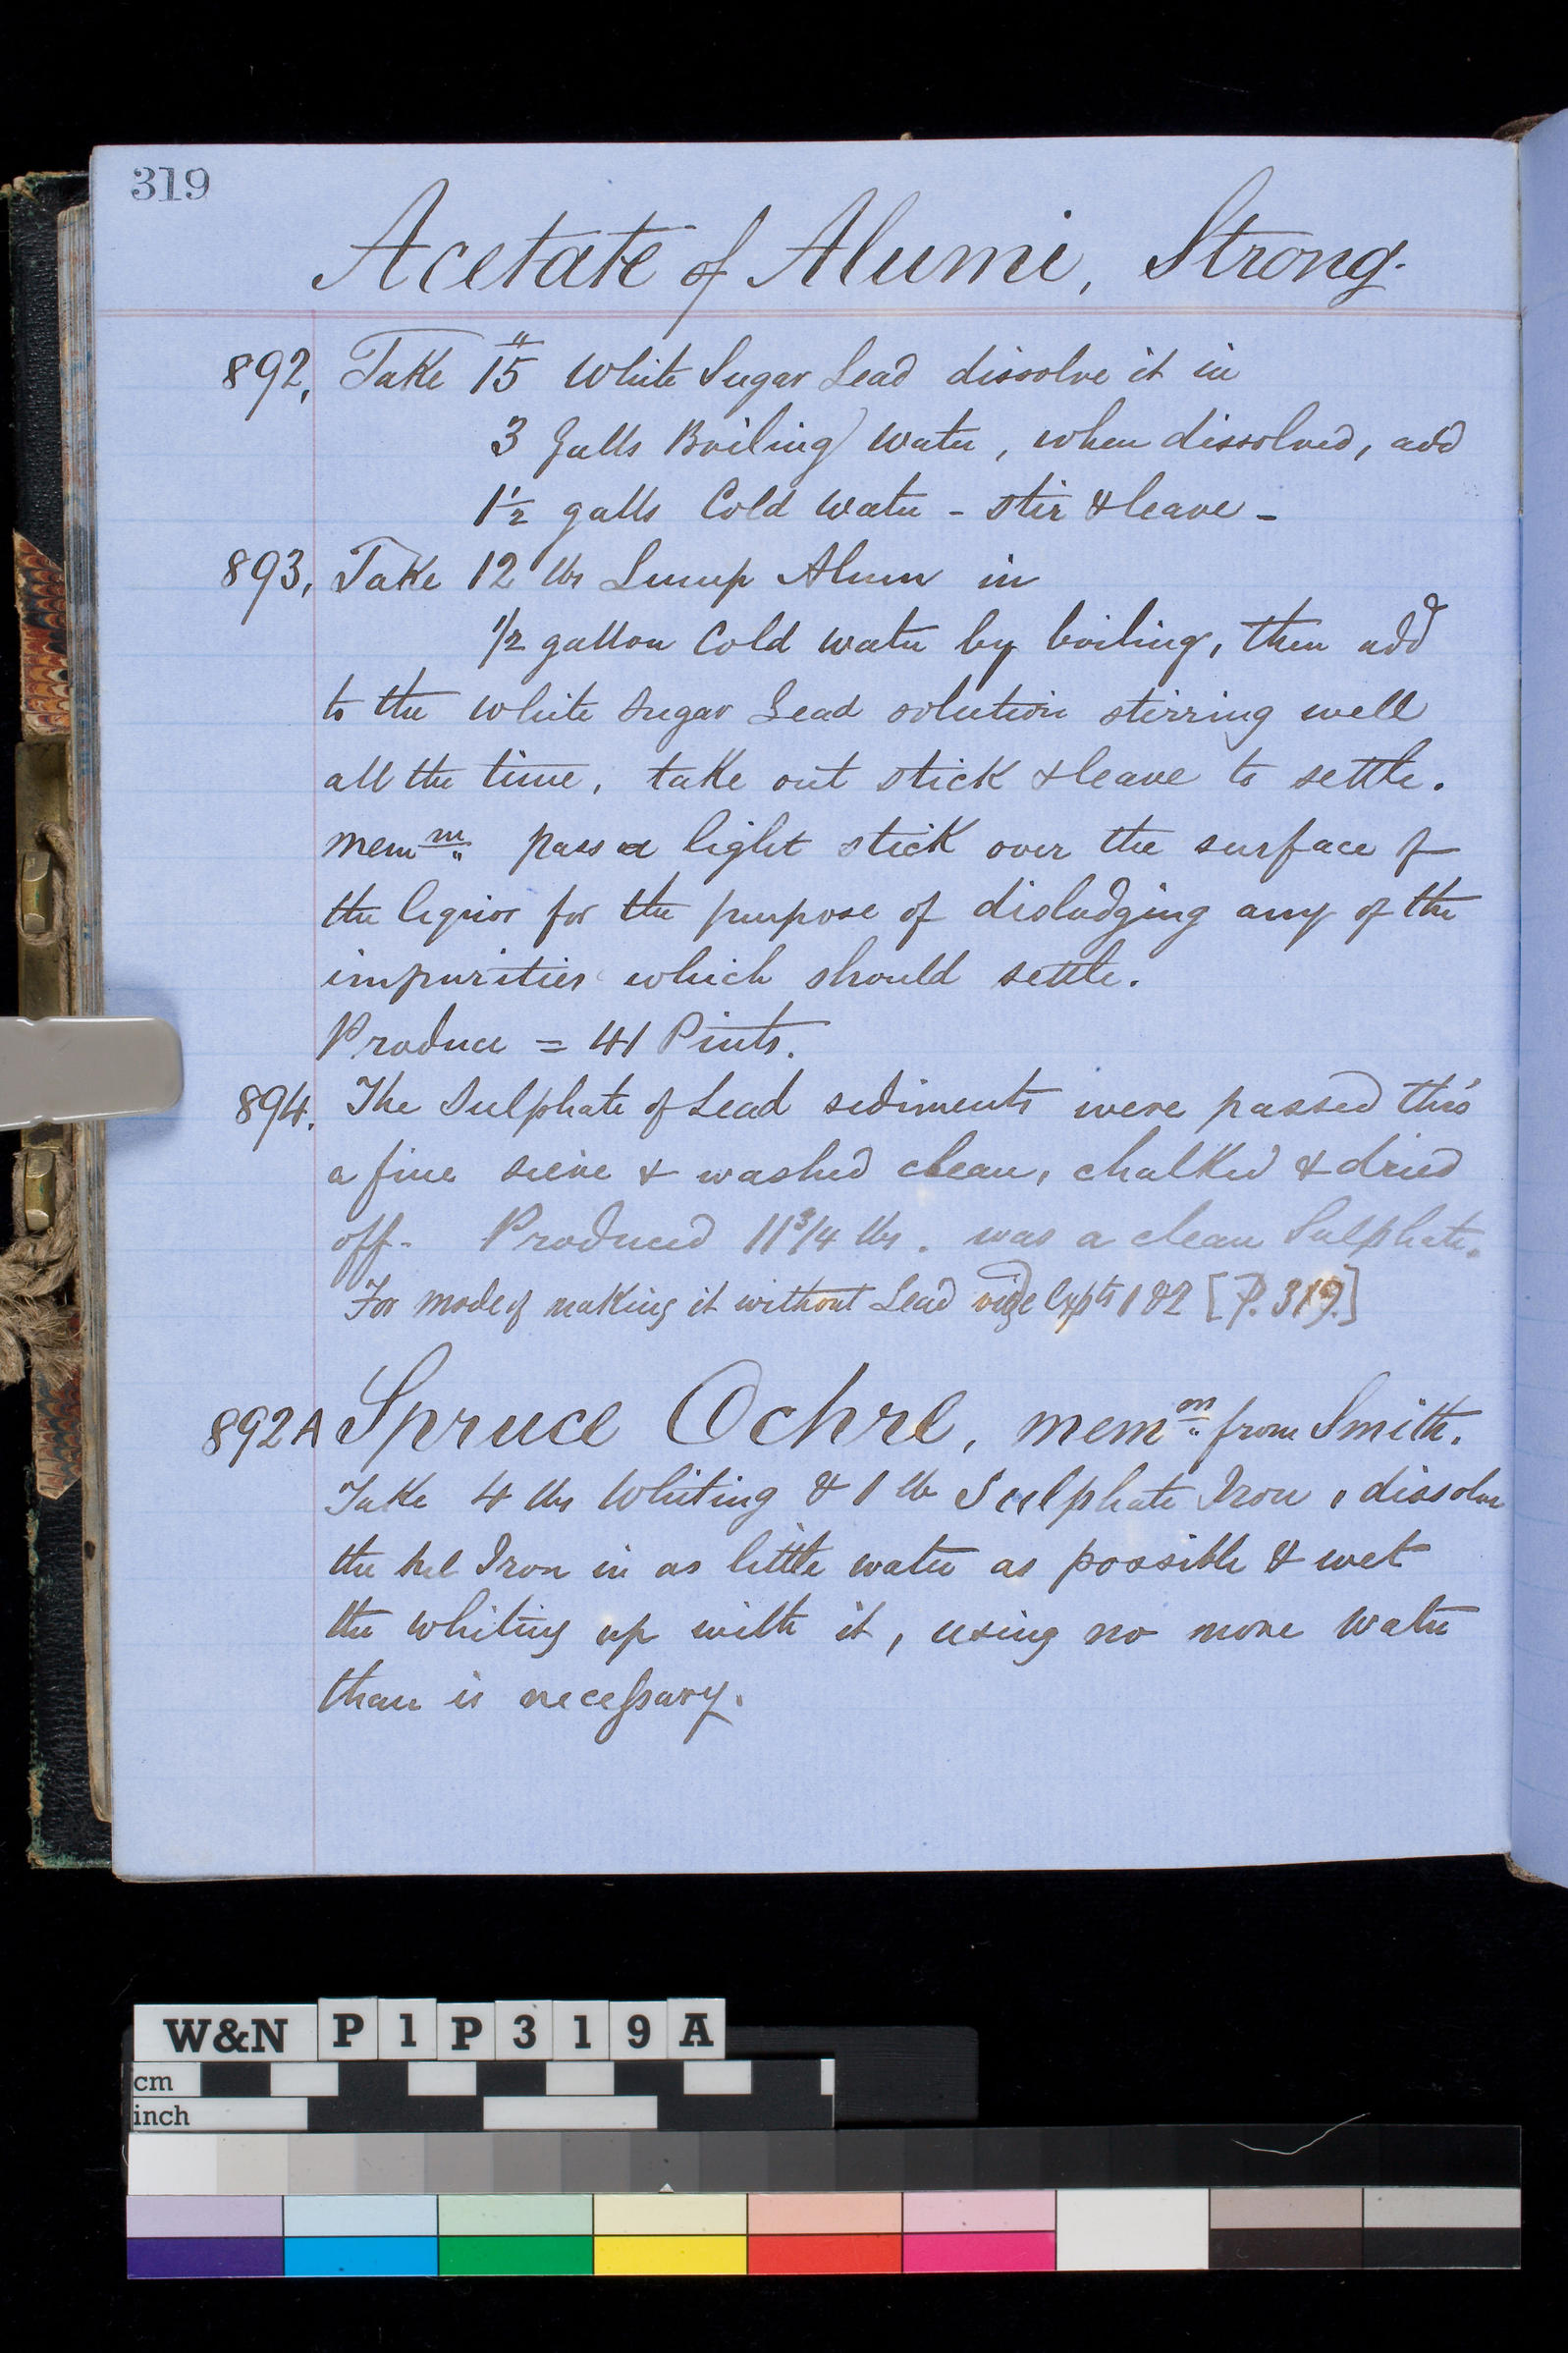 319
Acetate of Alumi, Strong.
892, Take 15 " White Sugar Lead dissolve it in
3 Galls Boiling Water, when dissolved, add
1½ galls Cold Water - stir & leave -
893, Take 12 lbs Lump Alum in
½ gallon Cold water by boiling, then add
to the White Sugar Lead solution stirring well
all the time, take out stick & leave to settle.
Memm. pass a light stick over the surface of
the liquor for the purpose of disludging any of the
impurities which should settle.
Produce = 41 Pints.
894. The Sulphate of Lead sediments were passed thro'
a fine sieve & washed clean, chalked & dried
off - Produced 11¾ lbs. was a clean Sulphate.
For mode of making it without Lead vide Expts 1 & 2 [P. 319.]
892A Spruce Ochre, memm. from Smith.
Take 4 lbs Whiting & 1 lb Sulphate Iron, dissolve
the Sul Iron in as little water as possible & wet
the whiting up with it, using no more water
than is necessary.
W&N P1P319A
cm
inch